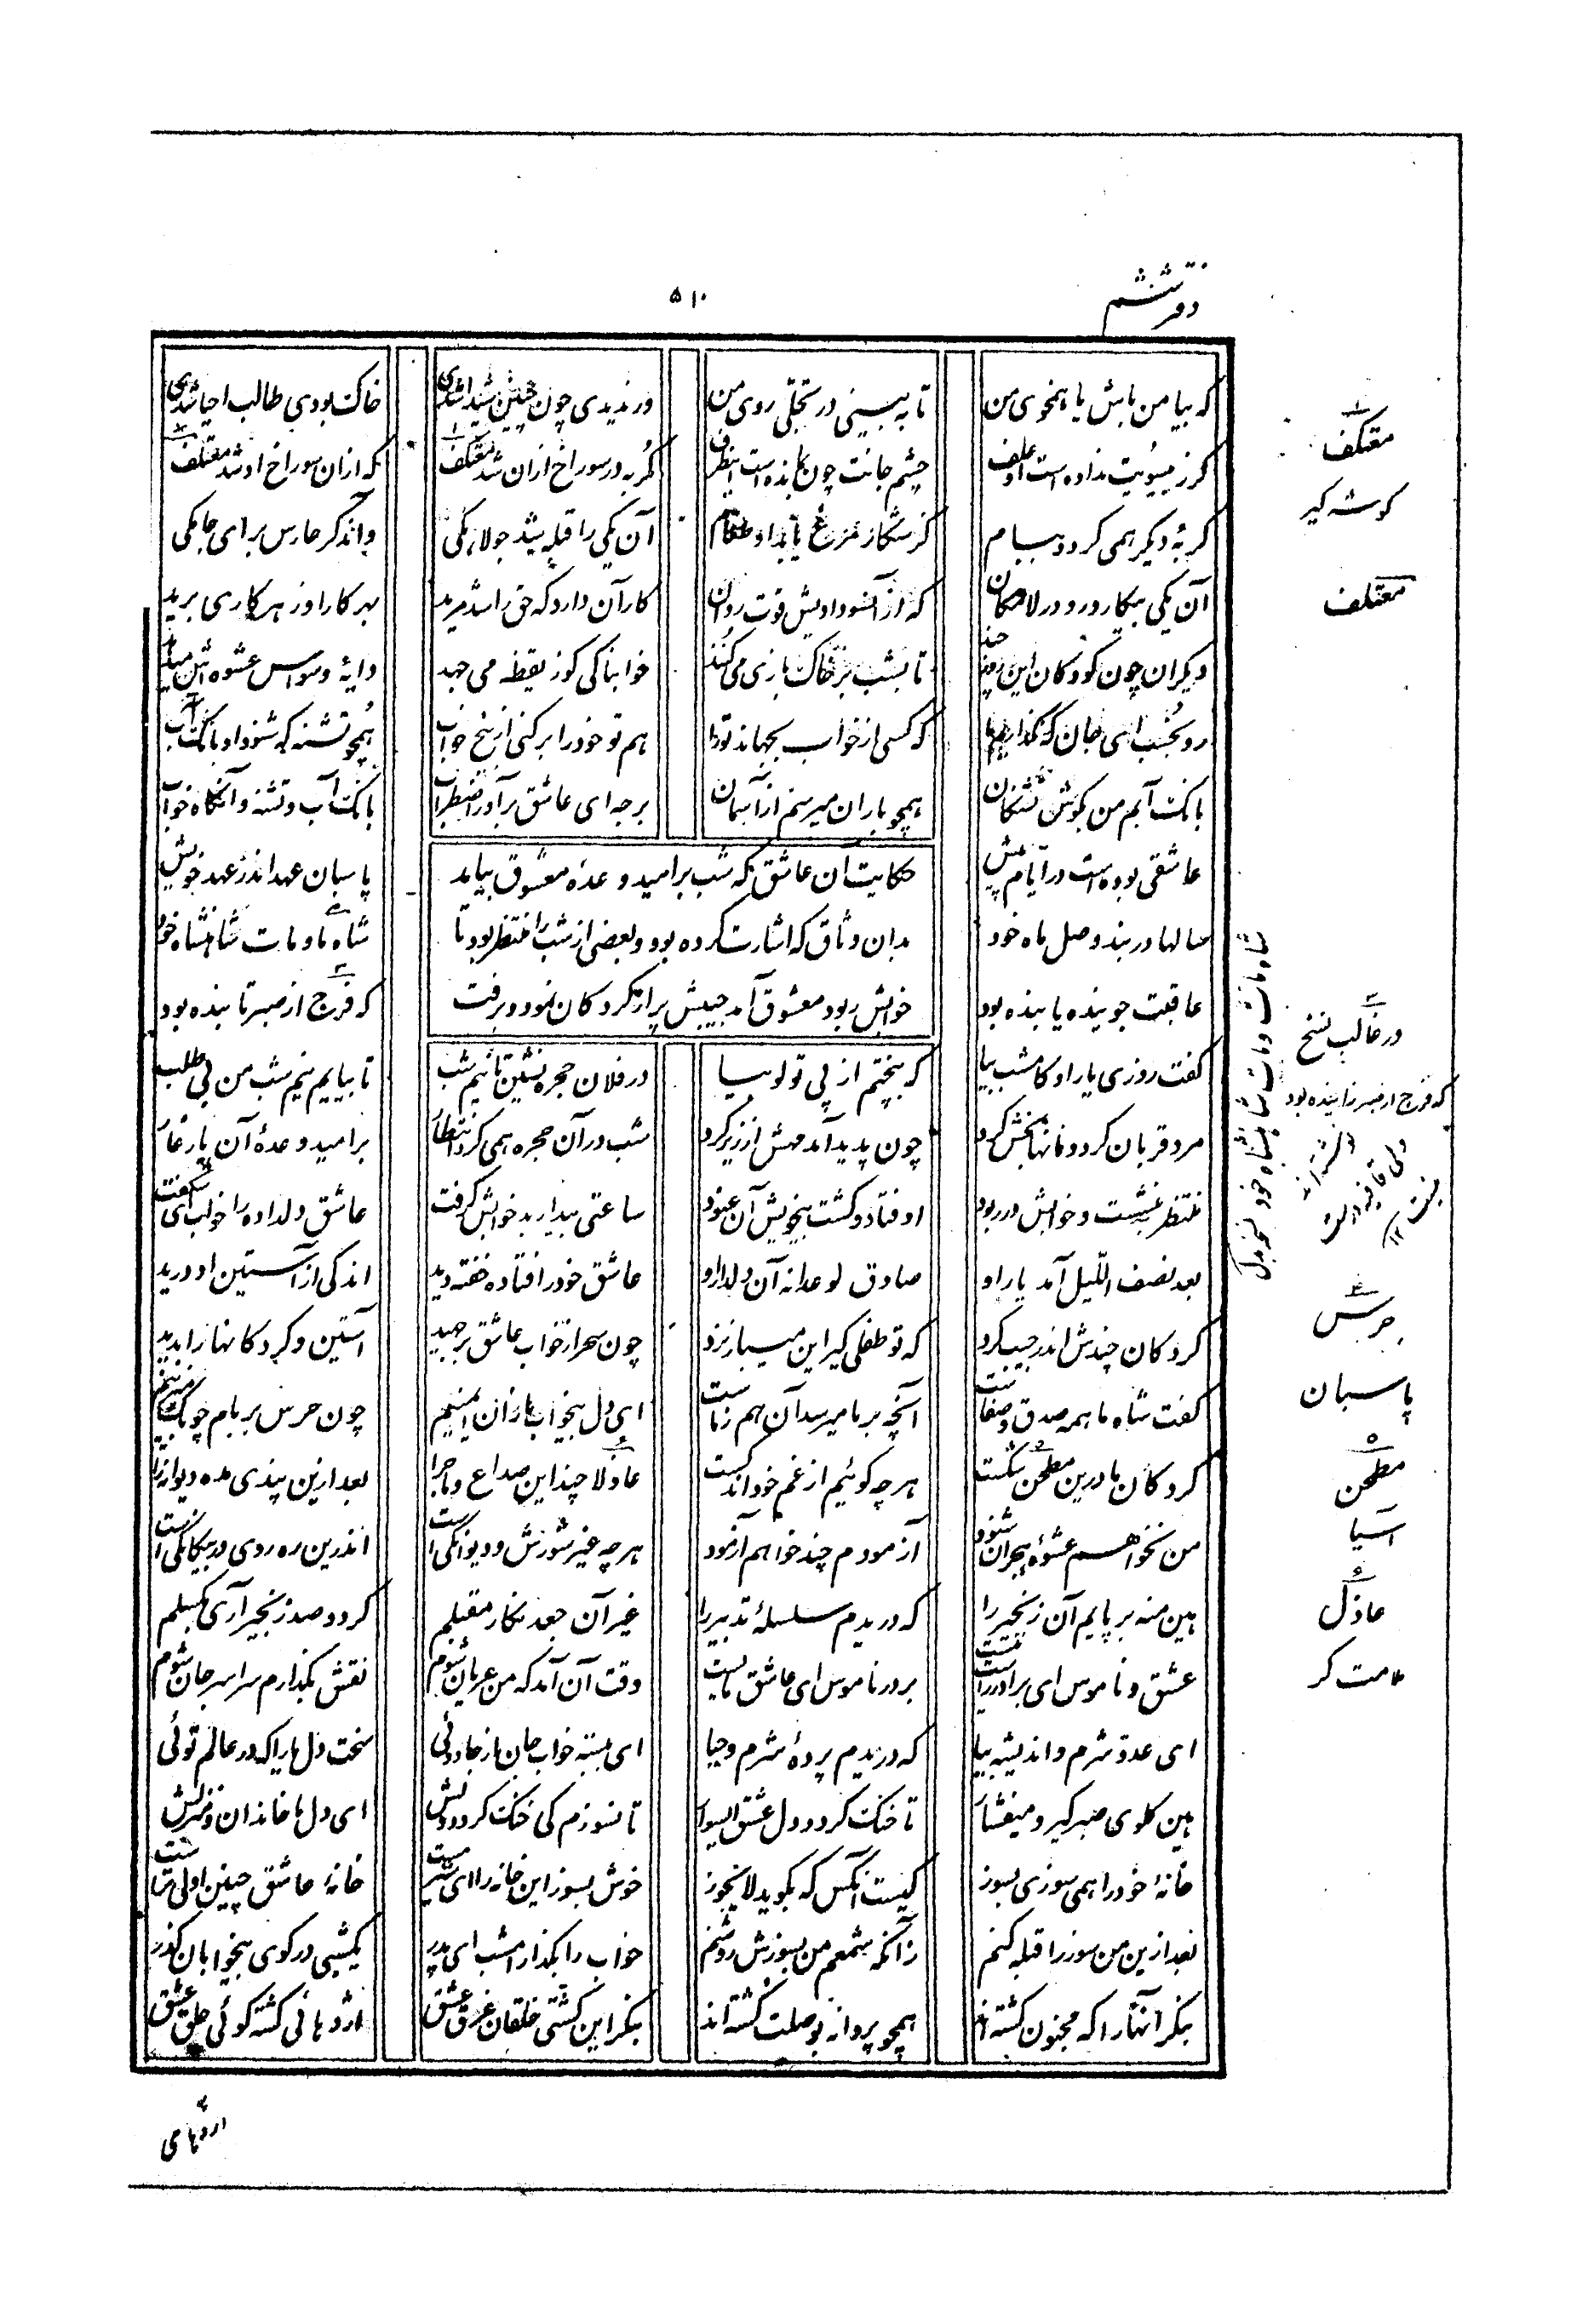 دفتر ششم
۵۱۰
که بیا من باش یا همخوی من تا به بینی در تجلی روی من ور ندیدی چون چنین شیدا شدی خاک بودی طالب احیا شدی
گر ز بیسوئیت نداده است او علف چشم جانت چون بمانده است اینطرف گربه در سوراخ ازان شد معتکف که ازان سوراخ او شد معتلف
گربهٔ دیگر همی گردد ببام کز شکار مرغ یابد او طعام آن یکی را قبله شد جولاهگی واندگر حارس برای جامگی
آن یکی بیکار و رو در لامکان که ازانسو دادیش قوت روان کار آن دارد که حق را شد مرید بهر کار او ز هر کاری برید
دیگران چون کودکان این روز چند تا بشب بر خاک بازی می کنند خوابناکی کو ز یقظه می جهد دایهٔ وسواس عشوه اش میدهد
رو بخسب ای جان که نگذاریم ما که کسی از خواب بجهاند ترا هم تو خود را بر کنی از بیخ خواب همچو تشنه که شنود او بانگ آب
بانگ آبم من بگوش تشنگان همچو باران میرسم از آسمان برجه ای عاشق برآور اضطراب بانگ آب و تشنه و آنگاه خواب
حکایت آن عاشق که شب بر امید وعدهٔ معشوق بیاید
بدان وثاق که اشارت کرده بود و بعضی از شب را منتظر بود تا
خوابش ربود معشوق آمد جیبش پر از گردکان نمود و برفت
عاشقی بوده است در ایام پیش پاسبان عهد اندر عهد خویش
سالها در بند وصل ماه خود شاه مات و مات شاهنشاه خود
عاقبت جوینده یابنده بود که فرج از صبر تابنده بود
گفت روزی یار او کامشب بیا که بپختم از پی تو لوبیا در فلان حجره نشین تا نیم شب تا بیایم نیم شب من بی طلب
مرد قربان کرد و نانها بخش کرد چون پدید آمد مهش از زیر گرد شب در آن حجره همی کرد انتظار بر امید وعدهٔ آن یار غار
منتظر بنشست و خوابش در ربود اوفتاد و گشت بیخویش آن عنود ساعتی بیدار بد خوابش گرفت عاشق دلداده را خواب ای شگفت
بعد نصف اللیل آمد یار او صادق لوعدانه آن دلدار او عاشق خود را فتاده خفته دید اندکی از آستین او درید
گردکان چندش اندر جیب کرد که تو طفلی گیر این میباز نرد چون سحر از خواب عاشق برجهید آستین و گردکانها را بدید
گفت شاه ما همه صدق و صفاست آنچه بر ما میرسد آن هم ز ماست ای دل بیخواب ما زان ایمنیم چون حرس بر بام چوبک میزنیم
گردکان ما درین مطحن شکست هر چه گوئیم از غم خود اندکست عاذلا چند این صداع و ماجرا بعد ازین پندی مده دیوانه را
من نخواهم عشوهٔ هجران شنود آزمودم چند خواهم آزمود هر چه غیر شورش و دیوانگی است اندرین ره روی در بیگانگی است
هین منه بر پایم آن زنجیر را که دریدم سلسلهٔ تدبیر را غیر آن جعد نگار مقبلم گر دو صد زنجیر آری بگسلم
عشق و ناموس ای برادر راست نیست بر در ناموس ای عاشق مایست وقت آن آمد که من عریان شوم نقش بگذارم سراسر جان شوم
ای عدو شرم و اندیشه بیا که دریدم پردهٔ شرم و حیا ای ببسته خواب جان از جادوئی سخت دل یارا که در عالم توئی
هین گلوی صبر گیر و میفشار تا خنک گردد دل عشق ای سوار تا نسوزم کی خنک گردد دلش ای دل ما خاندان و منزلش
خانهٔ خود را همی سوزی بسوز کیست آنکس که بگوید لایجوز خوش بسوز این خانه را ای شیر مست خانهٔ عاشق چنین اولی ترست
بعد ازین من سوز را قبله کنم زآنکه شمعم من بسوزش روشنم خواب را بگذار امشب ای پدر یکشبی در کوی بیخوابان گذر
بنگر آنها را که مجنون گشته اند همچو پروانه بوصلت کشته اند بنگر این کشتی خلقان غرق عشق اژدهائی گشته گوئی حلق عشق
۱
معتکف
گوشه گیر
معتلف
۳
در غالب نسخ
که فرج از صبر زاینده بود
ولی قافیه
نیست ۱۲
شاه مات و مات شاهنشاه خود نسخه بدل
۴
حرس
پاسبان
۵
مطحن
آسیا
۶
عاذل
ملامت گر
اژدهای